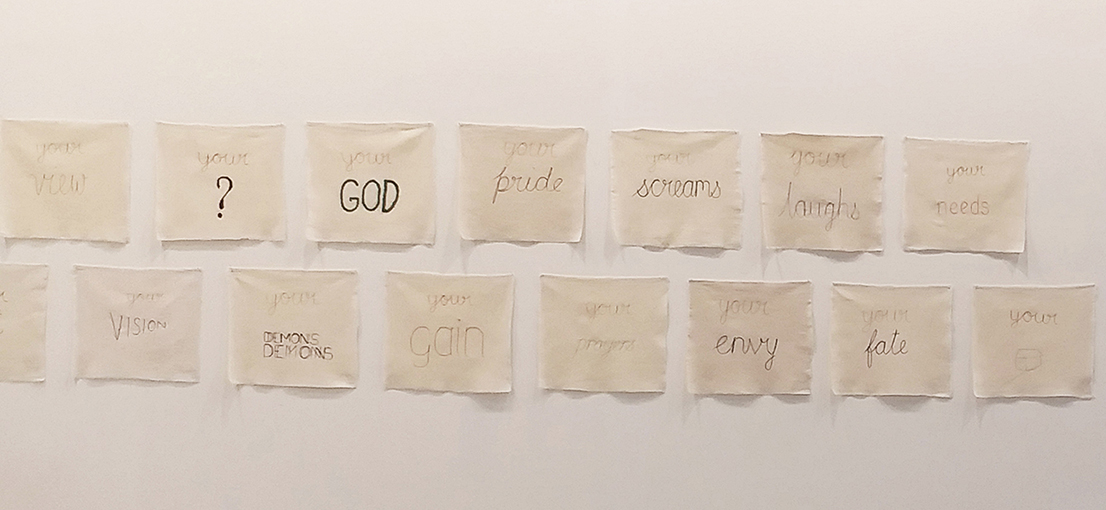 your
view
your
?
your
GOD
your
pride
your
screams
your
laughs
your
needs
your
VISION
your
DEMONS
DEMONS
your
gain
your
prayers
your
envy
your
fate
your